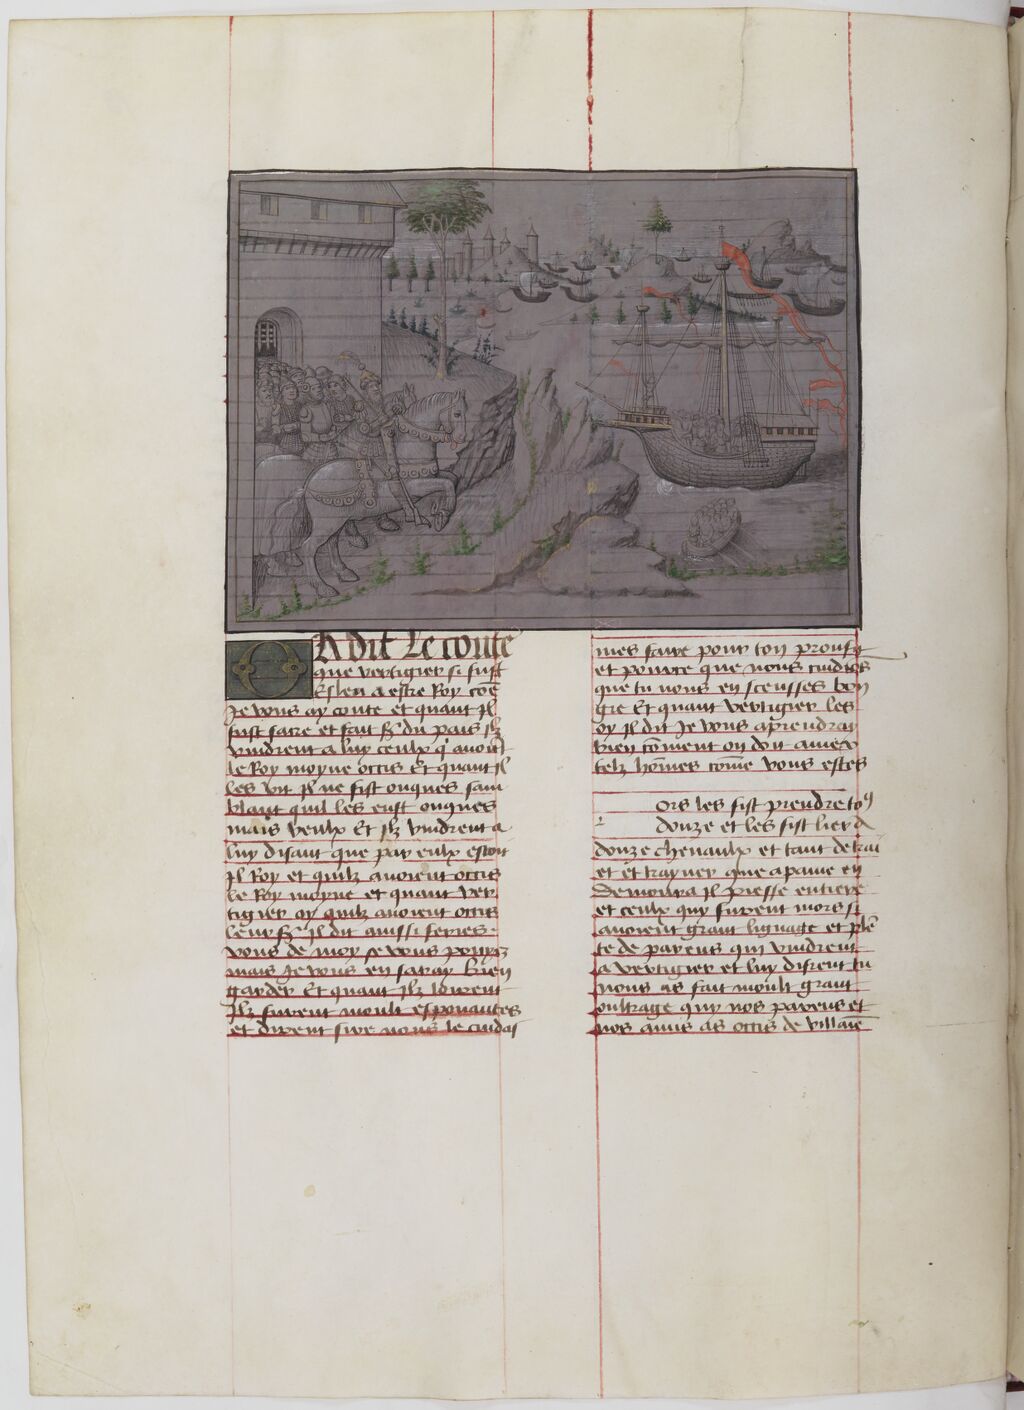 Or dit le conte
que vertigier si fust
Esleu a estre Roy coē
Je vous ay conte et quant Il
fust sacre et fait sr̄ du pais Ilz
vindrent a luy ceulx q̄ avoiēt
le Roy moyne occis Et quant Il
les vit Il ne fist onques sam
blant quil les eust onques
mais veulx Et Ilz vindrent a
luy disant que par eulx estoit
Il Roy et quilz avoient occis
le Roy moyne et quant ver
tigier oy quilz avoient occis
leur sr̄ Il dit aussi feries
vous de moy se vous povyez
mais Je vous en saray bien
garder Et quant Ilz loirent
Ilz furent moult espouantes
et dirent sire nous le cuidas
mes faire pour ton prouffit
et pource que nous cuidies
que tu nous en sceusses bon
gre Et quant vertigier les
oy Il dit Je vous aprendray
bien cōment on doit amer
telz hōmes cōme vous estes
Ors les fist prendre to9
douze et les fist lier a
douze chevaulx et tant detrai
et et trayner que a paine en
demoura Il piesse entiere
et ceulx quy furent mors si
avoient grant lignage et plē
te de parens qui vindrent
a vertigier et luy disrent tu
nous as fait moult grant
oultrage quy nos parens et
nos amis as occis de villaiē